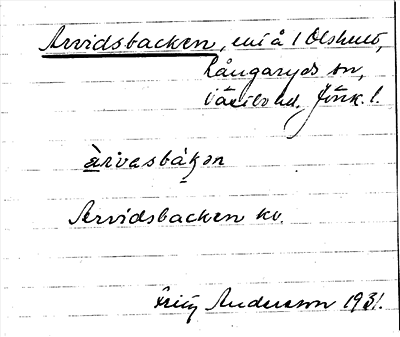 Arvidsbacken, en i å 1 Olshult,
Långaryds sn,
Västbo hd. Jönk. l.
àrvasbákən
Arvidsbacken kv.
Fritz Andersson 1931.